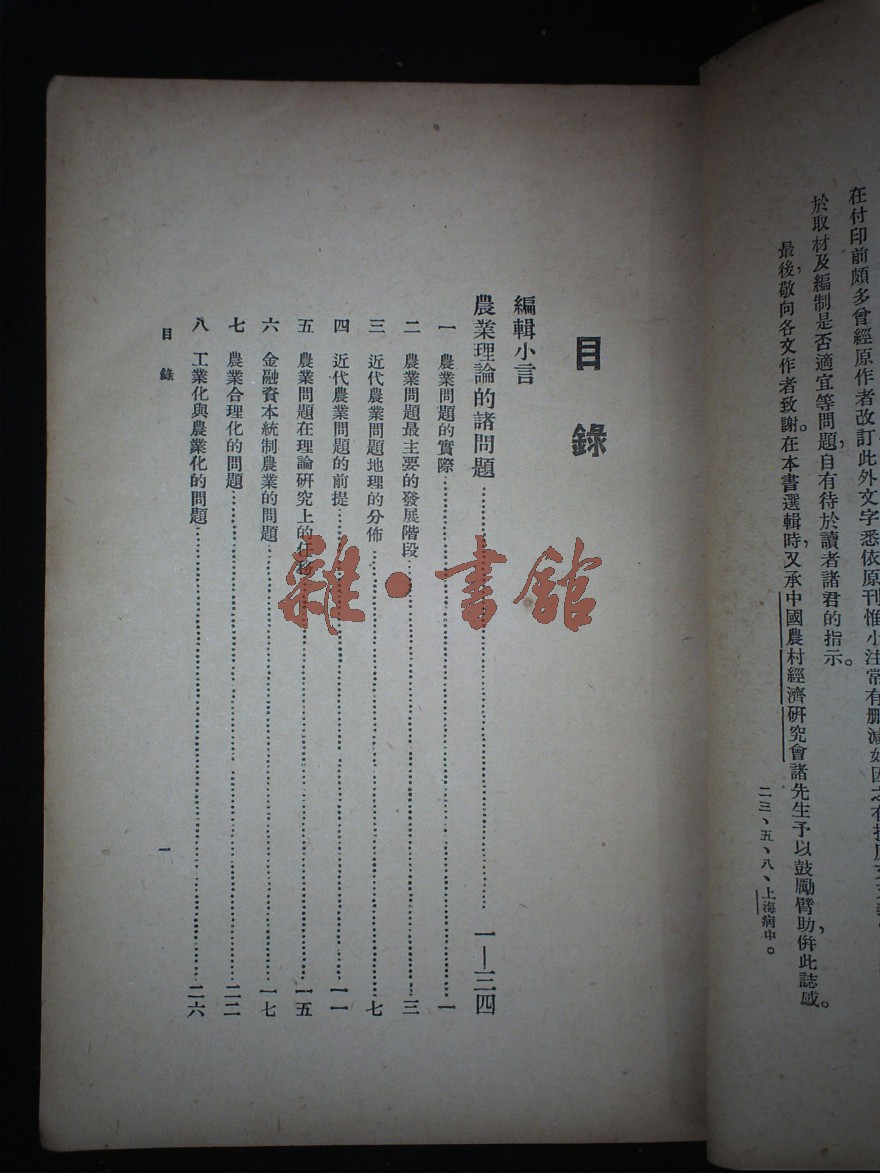 在付印前頗多曾經原作者改訂，此外文字悉依原刊，惟小注常有刪減，如因之有
於取材及編制是否適宜等問題，自有待於讀者諸君的指示。
最後，敬向各文作者致謝。在本書選輯時，又承中國農村經濟研究會諸先生予以鼓勵臂助，併此誌感。
二三、五、八、上海病中。
目錄
編輯小言
農業理論的諸問題……一—三四
一 農業問題的實際……一
二 農業問題最主要的發展階段……三
三 近代農業問題地理的分佈……七
四 近代農業問題的前提……一一
五 農業問題在理論研究上的任務……一五
六 金融資本統制農業的問題……一七
七 農業合理化的問題……二二
八 工業化與農業化的問題……二六
目錄
一
雜·書館